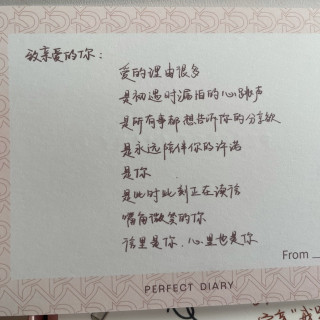 致亲爱的你:
爱的理由很多
是初遇时漏拍的心跳声
是所有事都想告诉你的分享欲
是永远陪伴你的许诺
是你
是此时此刻正在读信
嘴角微笑的你
信里是你.心里也是你
From
PERFECT DIARY